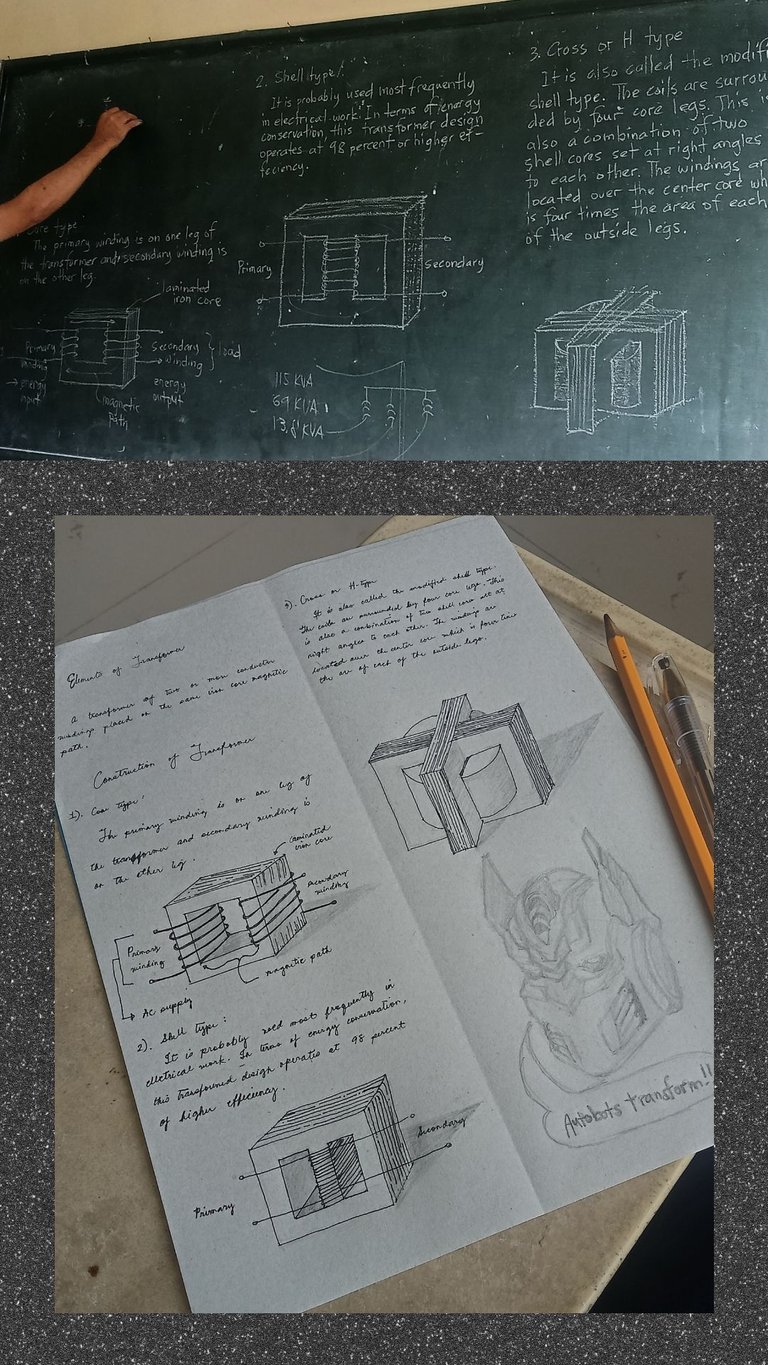 Core type
The primary winding is on one leg of
the transformer and secondary winding is
on the other leg.
laminated
iron core
Primary
winding
→ energy
input
Secondary
winding
load
energy
output
magnetic
path
2. Shell type
It is probably used most frequently
in electrical work. In terms of energy
conservation, this transformer design
operates at 98 percent or higher ef-
feciency.
Primary
Secondary
115 KVA
69 KVA
13.8 KVA
3. Cross or H type
It is also called the modifi
shell type. The coils are surroun
ded by four core legs. This is
also a combination of two
shell cores set at right angles
to each other. The windings ar
located over the center core wh
is four times the area of each
of the outside legs.
Elements of Transformer
A transformer of two or more conductor
windings placed on the same iron core magnetic
path.
Construction of Transformer
1). Core type:
The primary winding is on one leg of
the transformer and secondary winding is
on the other leg.
laminated
iron core
secondary
winding
Primary
winding
magnetic path
AC supply
2). Shell type:
It is probably used most frequently in
electrical work. In terms of energy conservation,
this transformed design operates at 98 percent
of higher efficiency.
Primary
Secondary
3). Cross or H-type
It is also called the modified shell type.
The coils are surrounded by four core legs. This
is also a combination of two shell core set at
right angles to each other. The windings are
located over the center core which is four time
the are of each of the outside legs.
Autobots transform!!